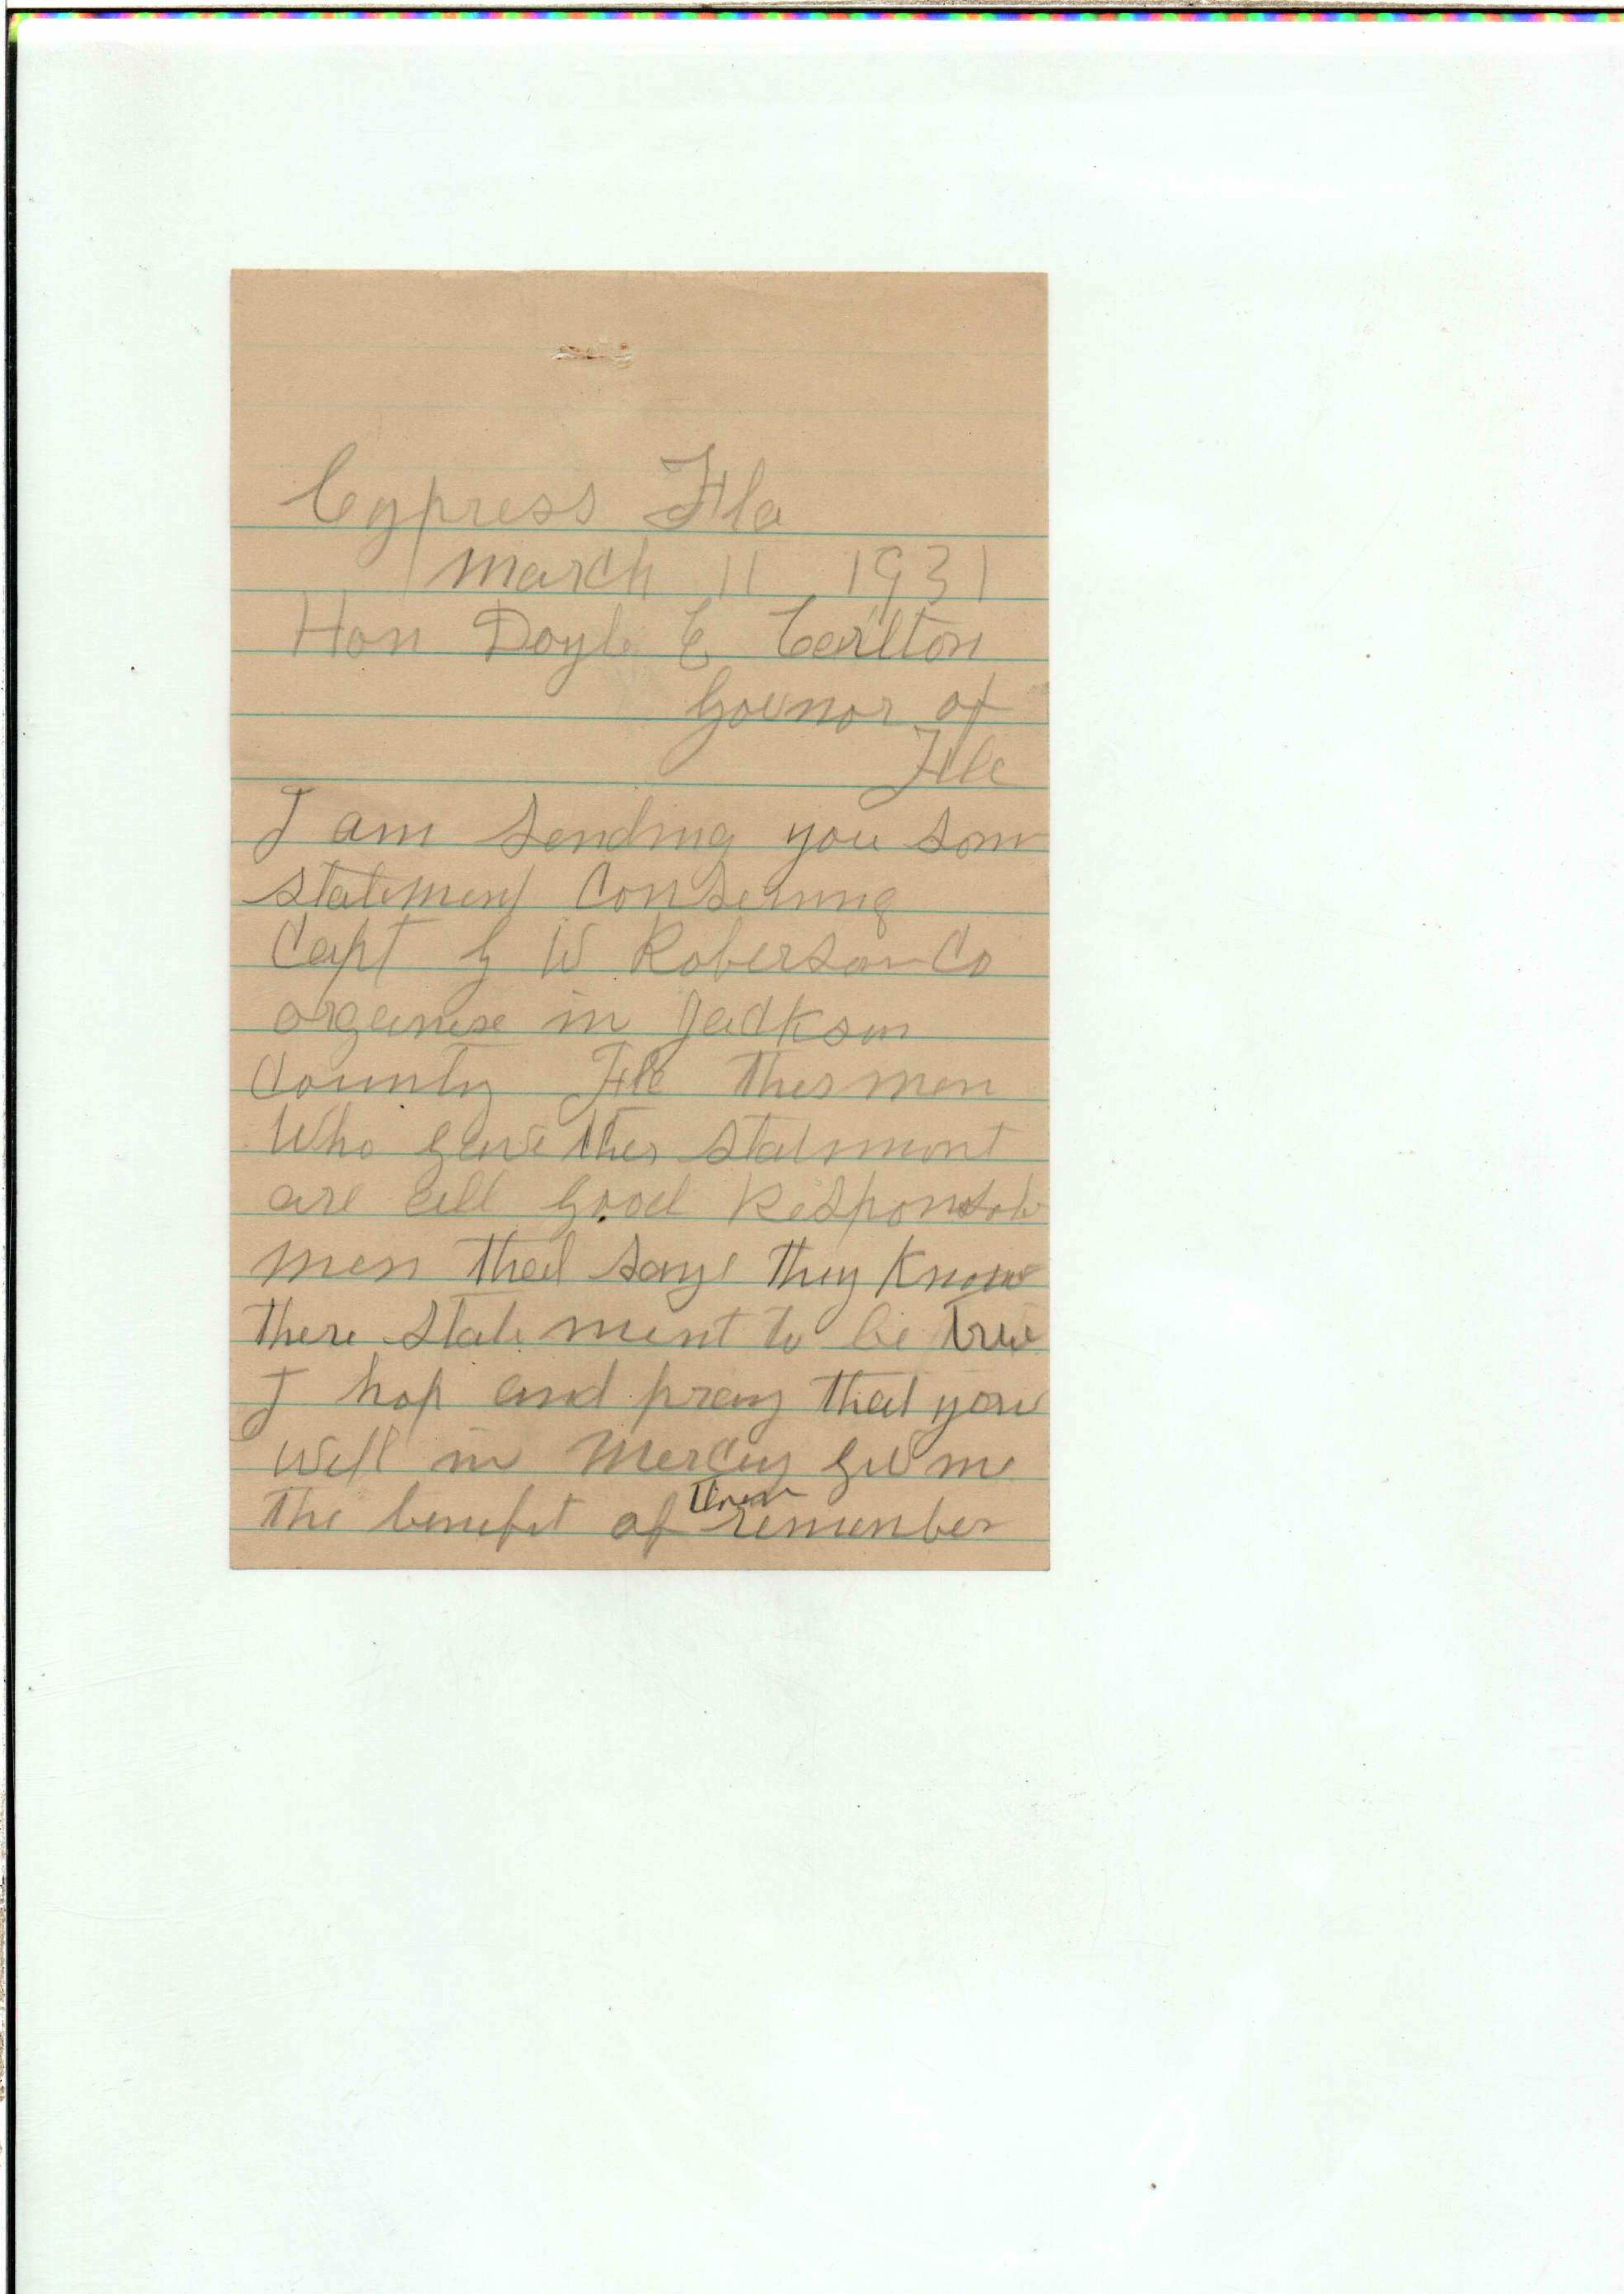 Cypress Fla
March 11 1931
Hon Doyle E Carlton
Govnor of
Fla
I am sending you som
statement Conserning
Capt G W Roberson Co
organise in Jackson
County Fla thes men
Who gave thes statment
are all good Responsabl
men that says they Know
there statement to be true
I hop and pray that you
will in Mercy giv me
the benefit of them remember